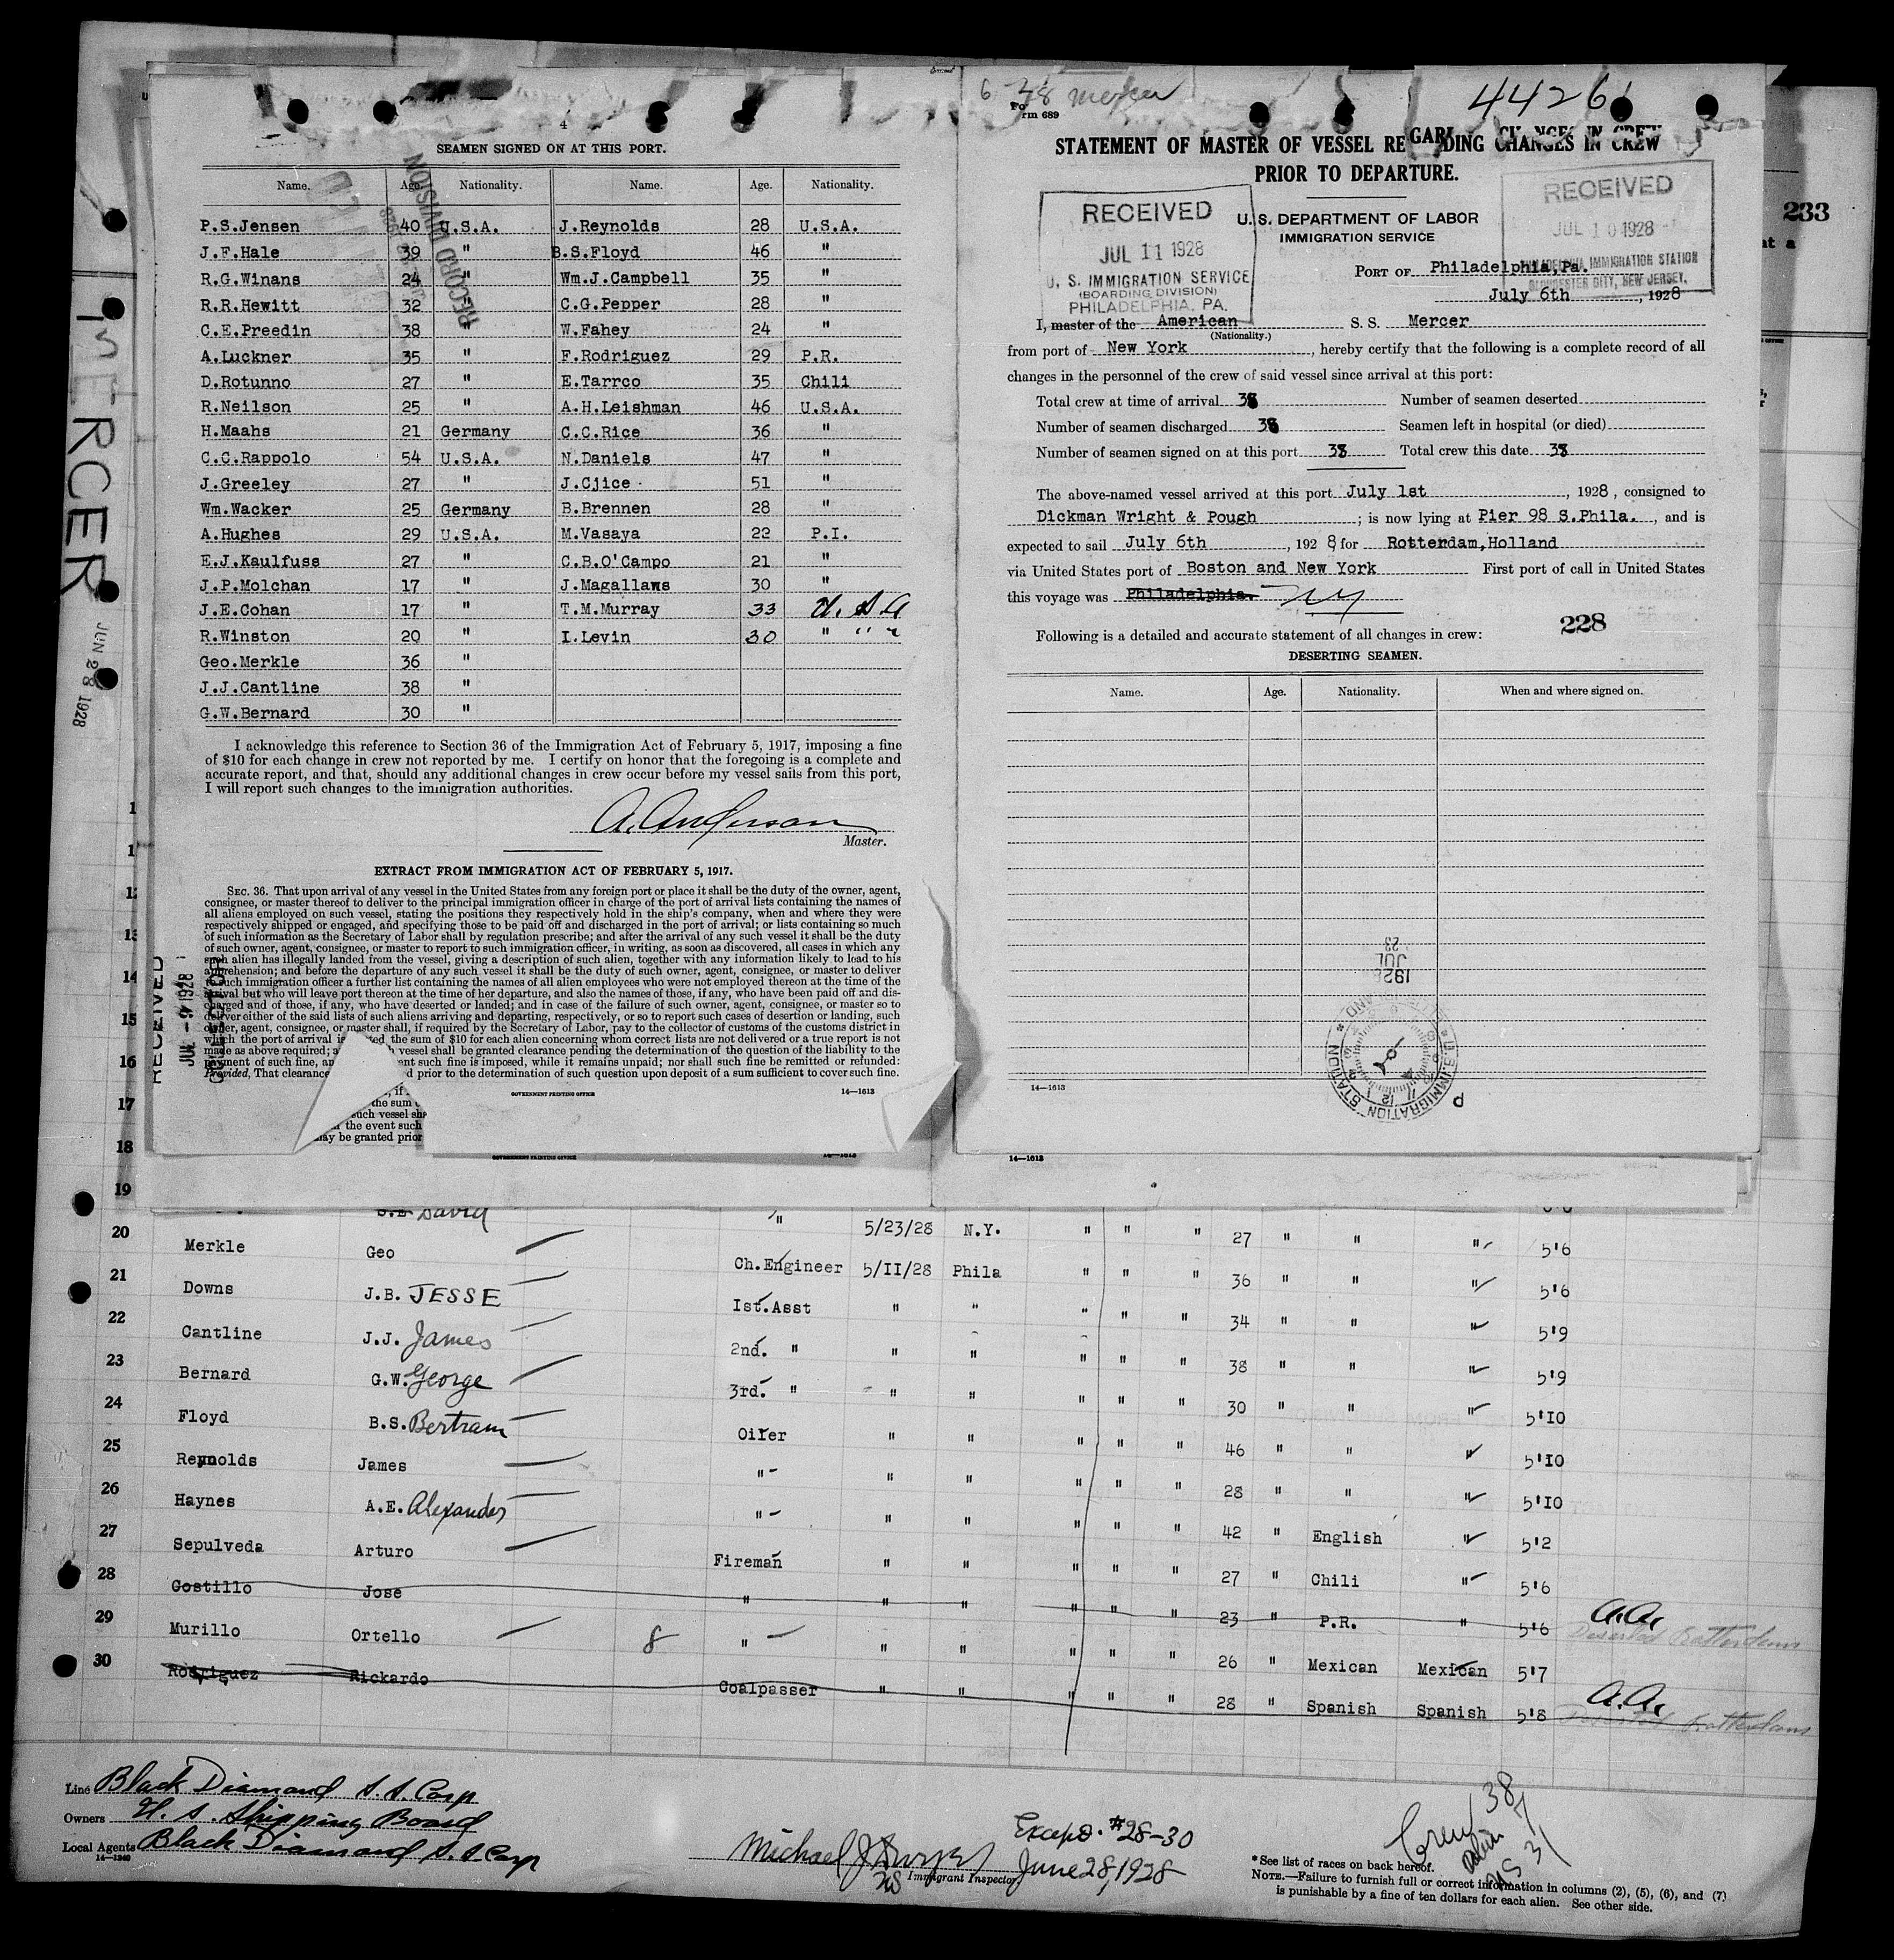 6-28 Mercer
44261
Form 689
4
SEAMEN SIGNED ON AT THIS PORT.
Name. Age. Nationality. Name. Age. Nationality.
P.S.Jensen 40 U.S.A. J.Reynolds 28 U.S.A.
J.F.Hale 39 " B.S.Floyd 46 "
R.G.Winans 24 " Wm.J.Campbell 35 "
R.R.Hewitt 32 " C.G.Pepper 28 "
C.E.Preedin 38 " W.Fahey 24 "
A.Luckner 35 " F.Rodriguez 29 P.R.
D.Rotunno 27 " E.Tarrco 35 Chili
R.Neilson 25 " A.H.Leishman 46 U.S.A.
H.Maahs 21 Germany C.C.Rice 36 "
C.C.Rappolo 54 U.S.A. N.Daniels 47 "
J.Greeley 27 " J.Cjice 51 "
Wm.Wacker 25 Germany B.Brennen 28 "
A.Hughes 29 U.S.A. M.Vasaya 22 P.I.
E.J.Kaulfuss 27 " C.B.O'Campo 21 "
J.P.Molchan 17 " J.Magallaws 30 "
J.E.Cohan 17 " T.M.Murray 33 U.S.A
R.Winston 20 " I.Levin 30 " " "
Geo.Merkle 36 "
J.J.Cantline 38 "
G.W.Bernard 30 "
RECORD DIVISION
I acknowledge this reference to Section 36 of the Immigration Act of February 5, 1917, imposing a fine
of $10 for each change in crew not reported by me. I certify on honor that the foregoing is a complete and
accurate report, and that, should any additional changes in crew occur before my vessel sails from this port,
I will report such changes to the immigration authorities.
A. Anderson
Master.
EXTRACT FROM IMMIGRATION ACT OF FEBRUARY 5, 1917.
SEC. 36. That upon arrival of any vessel in the United States from any foreign port or place it shall be the duty of the owner, agent,
consignee, or master thereof to deliver to the principal immigration officer in charge of the port of arrival lists containing the names of
all aliens employed on such vessel, stating the positions they respectively hold in the ship's company, when and where they were
respectively shipped or engaged, and specifying those to be paid off and discharged in the port of arrival; or lists containing so much
of such information as the Secretary of Labor shall by regulation prescribe; and after the arrival of any such vessel it shall be the duty
of such owner, agent, consignee, or master to report to such immigration officer, in writing, as soon as discovered, all cases in which any
such alien has illegally landed from the vessel, giving a description of such alien, together with any information likely to lead to his
apprehension; and before the departure of any such vessel it shall be the duty of such owner, agent, consignee, or master to deliver
to such immigration officer a further list containing the names of all alien employees who were not employed thereon at the time of the
arrival but who will leave port thereon at the time of her departure, and also the names of those, if any, who have been paid off and dis-
charged and of those, if any, who have deserted or landed; and in case of the failure of such owner, agent, consignee, or master so to
deliver either of the said lists of such aliens arriving and departing, respectively, or so to report such cases of desertion or landing, such
owner, agent, consignee, or master shall, if required by the Secretary of Labor, pay to the collector of customs of the customs district in
which the port of arrival is located, the sum of $10 for each alien concerning whom correct lists are not delivered or a true report is not
made as above required; a h vessel shall be granted clearance pending the determination of the question of the liability to the
payment of such fine, an ent such fine is imposed, while it remains unpaid; nor shall such fine be remitted or refunded:
Provided, That clearance d prior to the determination of such question upon deposit of a sum sufficient to cover such fine.
GOVERNMENT PRINTING OFFICE 14—1613
, if
the sum
such vessel sh
the event such
may be granted prior
GOVERNMENT PRINTING OFFICE 14—1613
STATEMENT OF MASTER OF VESSEL REGARDING CHANGES IN CREW
PRIOR TO DEPARTURE.
RECEIVED
JUL 11 1928
U. S. IMMIGRATION SERVICE
(BOARDING DIVISION)
PHILADELPHIA, PA.
U. S. DEPARTMENT OF LABOR
IMMIGRATION SERVICE
RECEIVED
JUL 10 1928
PHILADELPHIA IMMIGRATION STATION
GLOUCESTER CITY, NEW JERSEY.
PORT OF Philadelphia, Pa.
July 6th, 1928
I, master of the American S. S. Mercer
(Nationality.)
from port of New York, hereby certify that the following is a complete record of all
changes in the personnel of the crew of said vessel since arrival at this port:
Total crew at time of arrival 38 Number of seamen deserted
Number of seamen discharged 38 Seamen left in hospital (or died)
Number of seamen signed on at this port 38 Total crew this date 38
The above-named vessel arrived at this port July 1st, 1928, consigned to
Dickman Wright & Pough; is now lying at Pier 98 S.Phila., and is
expected to sail July 6th, 1928, for Rotterdam,Holland
via United States port of Boston and New York First port of call in United States
this voyage was Philadelphia. NY
228
Following is a detailed and accurate statement of all changes in crew:
DESERTING SEAMEN.
Name. Age. Nationality. When and where signed on.
1928
JUL
23
U.S. IMMIGRATION STATION
14—1613
14—1613
233
at a
MERCER
JUN 28 1928
RECEIVED
JUL - 9 1928
COLLECTOR
1
1
12
13
14
15
16
17
18
19
David " 5/23/28 N.Y. " " " 27 " " " 5'6
20 Merkle Geo Ch.Engineer 5/II/28 Phila " " " 36 " " " 5'6
21 Downs J.B. JESSE Ist.Asst " " " " " 34 " " 5'9
22 Cantline J.J. James 2nd. " " " " " " 38 " " " 5'9
23 Bernard G.W. George 3rd. " " " " " " 30 " " " 5'10
24 Floyd B.S. Bertram Oiler " " " " " 46 " " 5'10
25 Reynolds James " " " " " " 28 " " " 5'10
26 Haynes A.E. Alexander " " " " " " 42 " English " 5'2
27 Sepulveda Arturo Fireman " " " " " 27 " Chili " 5'6
28 Gostillo Jose " " " " " " 23 " P.R. " 5'6 A.A. Deserted Rotterdam
29 Murillo Ortello 8 " " " " " " 26 " Mexican Mexican 5'7
30 Rodriguez Rickardo Coalpasser " " " " " 28 " Spanish Spanish 5'8 A.A. Deserted Rotterdam
Line Black Diamond S.S. Corp
Owners U. S. Shipping Board
Local Agents Black Diamond S.S. Corp
14—1240
Except #28-30
Michael J.
June 28, 1928
Immigrant Inspector.
Crew 38
alien 7
US 31
*See list of races on back hereof.
NOTE.—Failure to furnish full or correct information in columns (2), (5), (6), and (7)
is punishable by a fine of ten dollars for each alien. See other side.